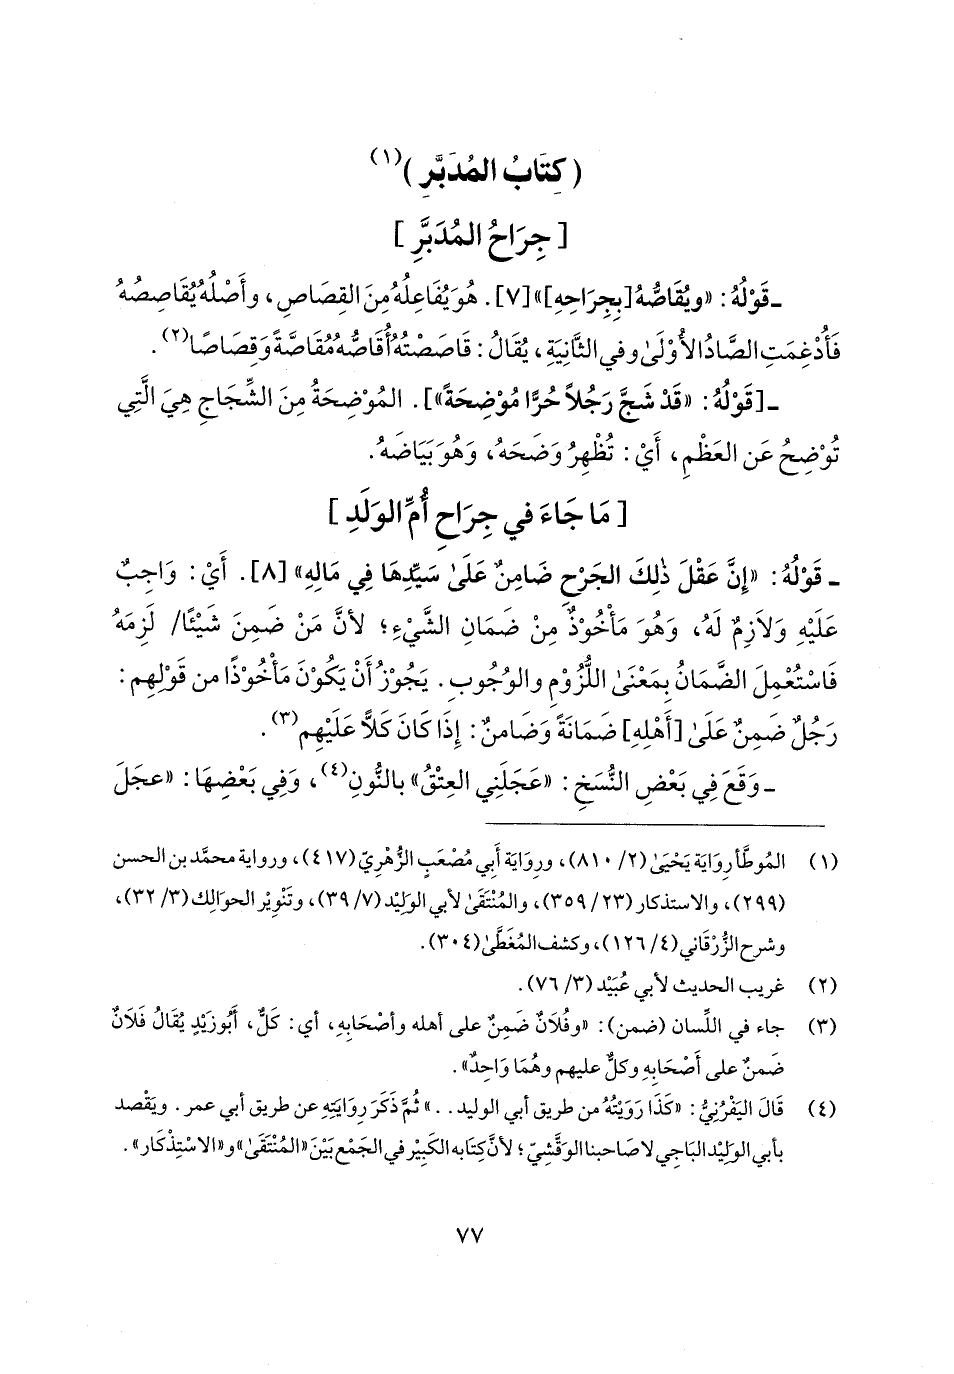 ( كِتَابُ المُدَبَّرِ )(١)
[ جِرَاحُ المُدَبَّرِ ]
ـ قَوْلُهُ: «ويُقَاصُّهُ [بِجِرَاحِهِ]» [٧]. هُوَ يُفَاعِلُهُ مِنَ القِصَاصِ، وأَصْلُهُ يُقَاصِصُهُ
فَأُدْغِمَتِ الصَّادُ الأُوْلَىٰ وفي الثَّانِيَةِ، يُقَالُ: قَاصَصْتُهُ أُقَاصُّهُ مُقَاصَّةً وَقِصَاصًا(٢).
ـ [قَوْلُهُ: «قَدْ شَجَّ رَجُلاً حُرًّا مُوْضِحَةً»]. المُوْضِحَةُ مِنَ الشِّجَاجِ هِيَ الَّتِي
تُوْضِحُ عَنِ العَظْمِ، أَيْ: تُظْهِرُ وَضَحَهُ، وَهُوَ بَيَاضَهُ.
[ مَا جَاءَ في جِرَاحِ أُمِّ الوَلَدِ ]
ـ قَوْلُهُ: «إِنَّ عَقْلَ ذٰلِكَ الجَرْحِ ضَامِنٌ عَلَىٰ سَيِّدِهَا فِي مَالِهِ» [٨]. أَيْ: وَاجِبٌ
عَلَيْهِ وَلاَزِمٌ لَهُ، وَهُوَ مَأْخُوْذٌ مِنْ ضَمَانِ الشَّيْءِ؛ لأنَّ مَنْ ضَمِنَ شَيْئًا/ لَزِمَهُ
فَاسْتُعْمِلَ الضَّمَانُ بِمَعْنَىٰ اللُّزُوْمِ والوُجُوبِ. يَجُوْزُ أَنْ يَكُوْنَ مَأْخُوْذًا من قَوْلِهِم:
رَجُلٌ ضَمِنٌ عَلَىٰ [أَهْلِهِ] ضَمَانَةً وَضَامنٌ: إِذَا كَانَ كَلًّا عَلَيْهِم(٣).
ـ وَقَعَ فِي بَعْضِ النُّسَخِ: «عَجَلَنِي العِتْقُ» بالنُّونِ(٤)، وَفِي بَعْضِهَا: «عجَلَ
(١) المُوطَّأ رِوَايَة يَحْيَىٰ (٢/ ٨١٠)، ورِوَايَة أَبِي مُصْعَبٍ الزُّهْرِيِّ (٤١٧)، ورواية محمَّد بن الحسن
(٢٩٩)، والاستذكار (٢٣/ ٣٥٩)، والمُنْتَقَىٰ لأبي الوَلِيْد (٧/ ٣٩)، وتَنْوِيْر الحوالك (٣/ ٣٢)،
وشرح الزُّرْقَاني (٤/ ١٢٦)، وكشف المُغَطَّىٰ (٣٠٤).
(٢) غريب الحديث لأبي عُبَيْد (٣/ ٧٦).
(٣) جاء في اللِّسان (ضمن): «وفُلَانٌ ضَمِنٌ على أهله وأصْحَابِهِ، أي: كَلٌّ، أَبُوزَيْدٍ يُقَالُ فَلَانٌ
ضَمنٌ على أَصْحَابِهِ وكلٌّ عليهم وهُمَا وَاحِدٌ».
(٤) قَالَ اليَفْرُنِيُّ: «كَذَا رَوَيْتُهُ من طريق أبي الوليد. .» ثُمَّ ذَكَرَ رِوَايَتِهِ عن طريق أبي عمر. ويَقْصد
بأبي الوَلِيْد البَاجِي لا صَاحبنا الوَقَّشِيّ؛ لأنَّ كِتَابه الكَبِيْر في الجَمْع بَيْنَ «المُنْتَقَىٰ» و«الاسْتِذْكار».
٧٧